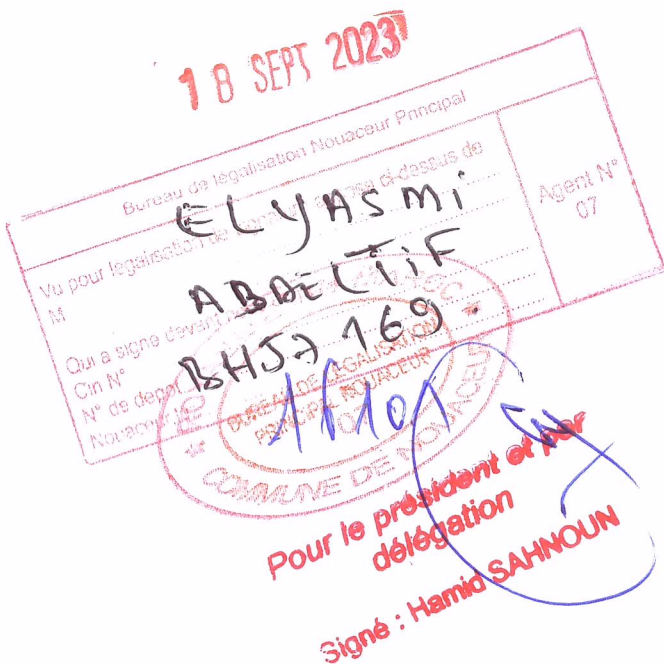 18 SEPT 2023
Bureau de légalisation Nouaceur Principal
Vu pour légalisation de ci-dessus de
M ELYASMI
ABDELTIF
Qui a signé devant
Cin N° BH57169.
N° de depot 16101
Nouaceur
Agent N°
07
BUREAU DE LEGALISATION
PRINCIPAL NOUACEUR
COMMUNE DE NOUACEUR
Pour le président et par
délégation
Signé : Hamid SAHNOUN